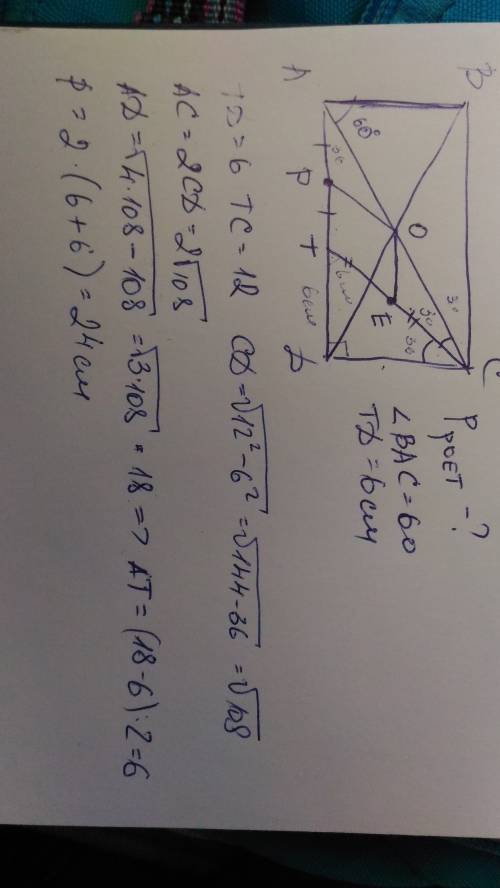 A B
60°
30
P
O
T
6см
6см
E
30
30
30
D C
P РОЕТ - ?
∠BAC = 60
TD = 6 см
TD = 6 TC = 12 CD = √12² - 6² = √144 - 36 = √108
AC = 2CD = 2√108
AD = √4·108 - 108 = √3·108 = 18 => AT = (18 - 6) : 2 = 6
P = 2 · (6 + 6) = 24 см